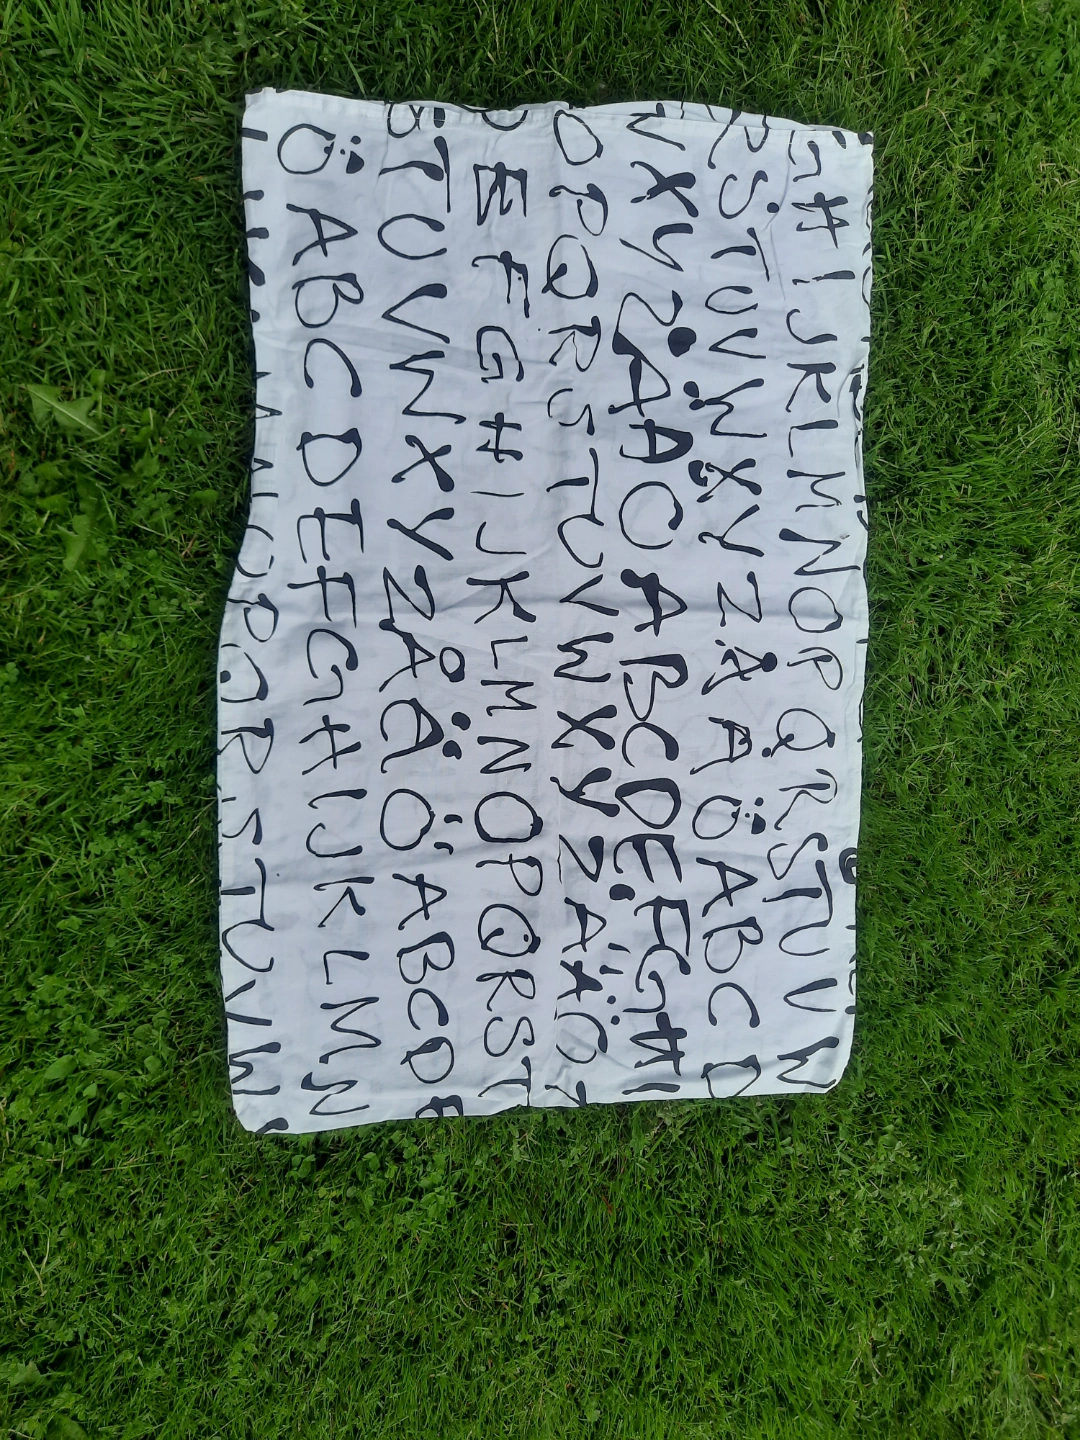 G H I J K L M N O P Q R S T U V W
R S T U V W X Y Z Å Ä Ö A B C D
X Y Z Å Ä Ö A B C D E F G H I
O P Q R S T U V W X Y Z Å Ä Ö
E F G H I J K L M N O P Q R S T
S T U V W X Y Z Å Ä Ö A B C D E
Ö A B C D E F G H I J K L M N
N O P Q R S T U V W